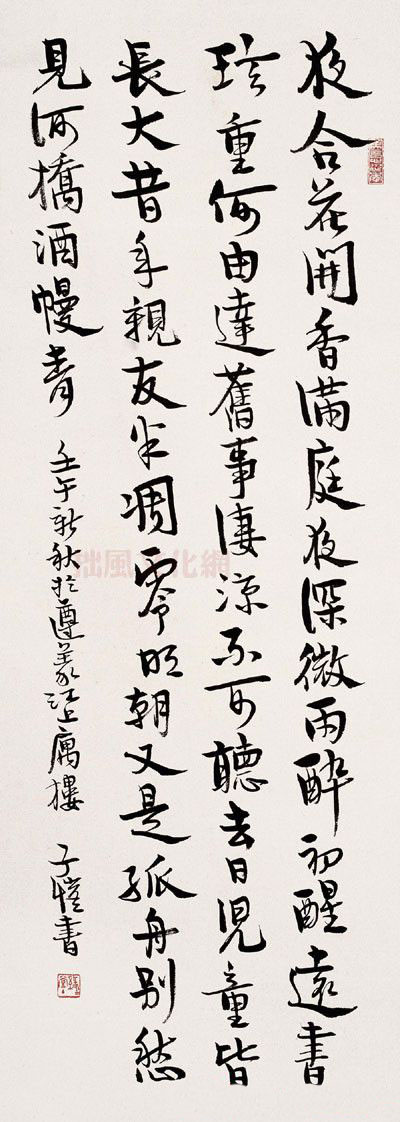 夜合花開香滿庭夜深微雨醉初醒遠書
珍重何由達舊事淒涼不可聽去日兒童皆
長大昔年親友半凋零明朝又是孤舟別愁
見河橋酒幔青
壬午新秋於遵義江上寓樓 子愷書
拙風文化網